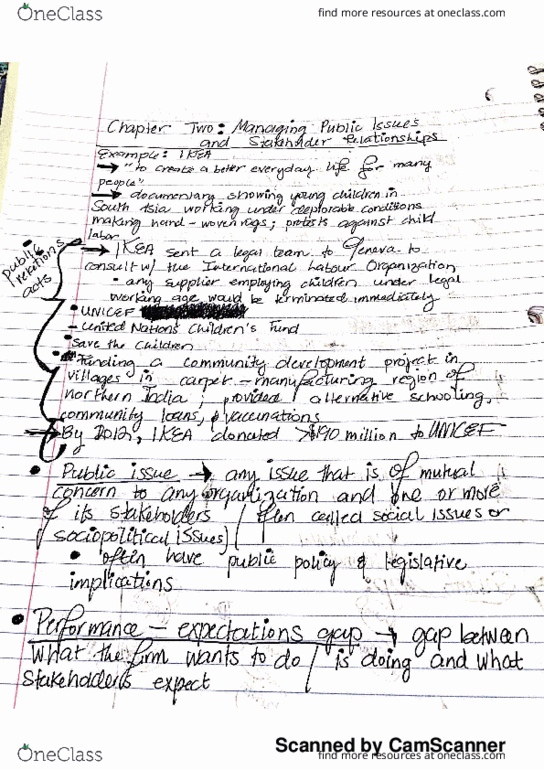 OneClass
find more resources at oneclass.com
Chapter Two: Managing Public Issues
and Stakeholder Relationships
Example: IKEA
→ "to create a better everyday life for many
people"
→ documentary showing young children in
South Asia working under deplorable conditions
making hand-woven rugs; protests against child
labor
public relations acts
→ IKEA sent a legal team to Geneva to
consult w/ the International Labour Organization
• any supplier employing children under legal
working age would be terminated immediately
• UNICEF
- United Nations Children's Fund
• Save the Children
• Funding a community development project in
villages in carpet-manufacturing region of
northern India; provided alternative schooling,
community loans, & vaccinations
→ By 2012, IKEA donated >$190 million to UNICEF
• Public issue → any issue that is of mutual
concern to any organization and one or more
of its stakeholders (often called social issues or
sociopolitical issues)
• often have public policy & legislative
implications
• Performance-expectations gap → gap between
what the firm wants to do / is doing and what
stakeholders expect
Scanned by CamScanner
OneClass
find more resources at oneclass.com